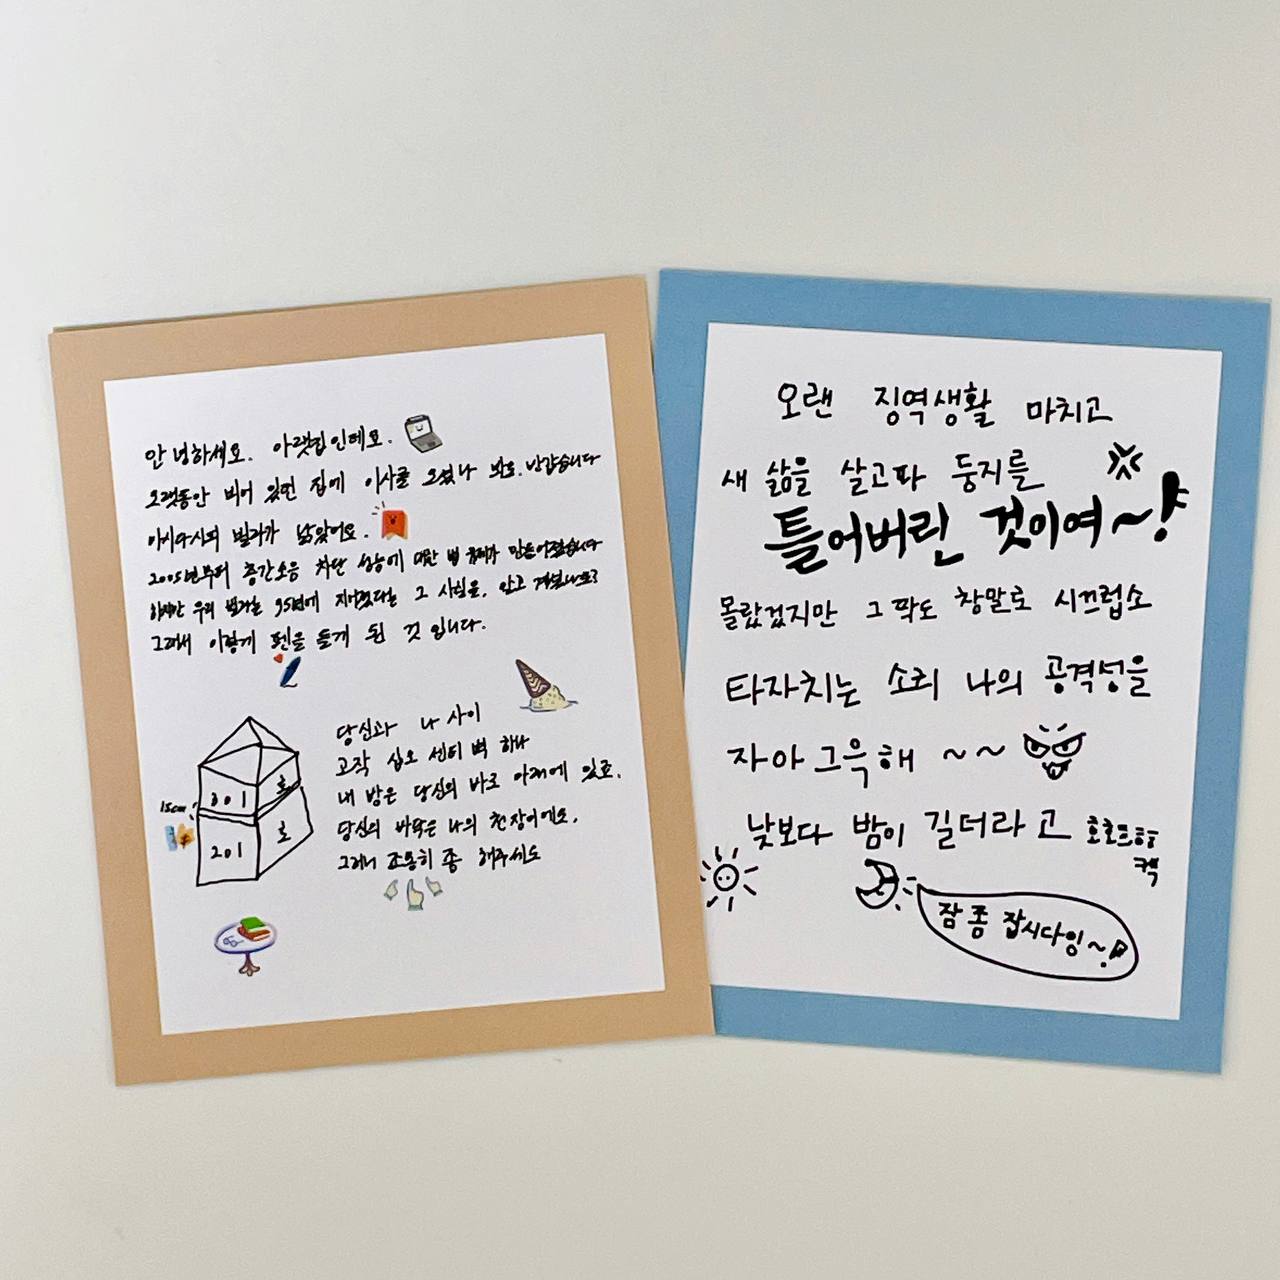 안녕하세요. 아랫집인데요.
오랫동안 비어 있던 집에 이사를 오셨나 봐요. 반갑습니다
아시다시피 빌라가 낡았어요.
2005년부터 층간소음 차단 성능에 대한 법 규제가 만들어졌습니다
하지만 우리 빌라는 95년에 지어졌다는 그 사실을, 알고 계셨나요?
그래서 이렇게 펜을 들게 된 것 입니다.
당신과 나 사이
고작 십오 센티 벽 하나
내 방은 당신의 바로 아래에 있죠.
당신의 바닥은 나의 천장이에요.
그러니 조용히 좀 해주세요
15cm
301 호
201 호
오랜 징역생활 마치고
새 삶을 살고파 둥지를
틀어버린 것이여~!
몰랐겠지만 그 짝도 참말로 시끄럽소
타자치는 소리 나의 공격성을
자아그윽해 ~~
낮보다 밤이 길더라고
잠 좀 잡시다잉~!